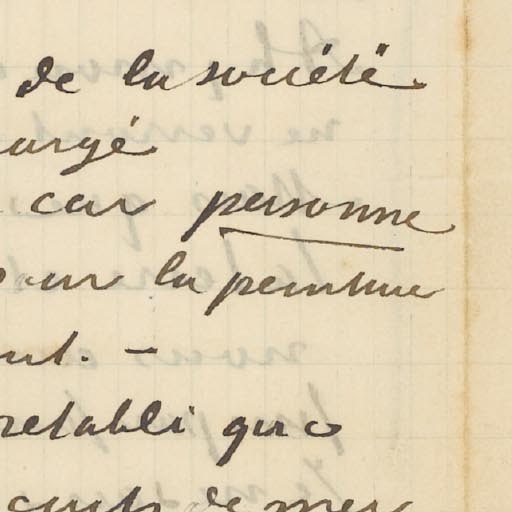 de la société
argé
car personne
pour la peinture
ent. –
retabli que
de mes